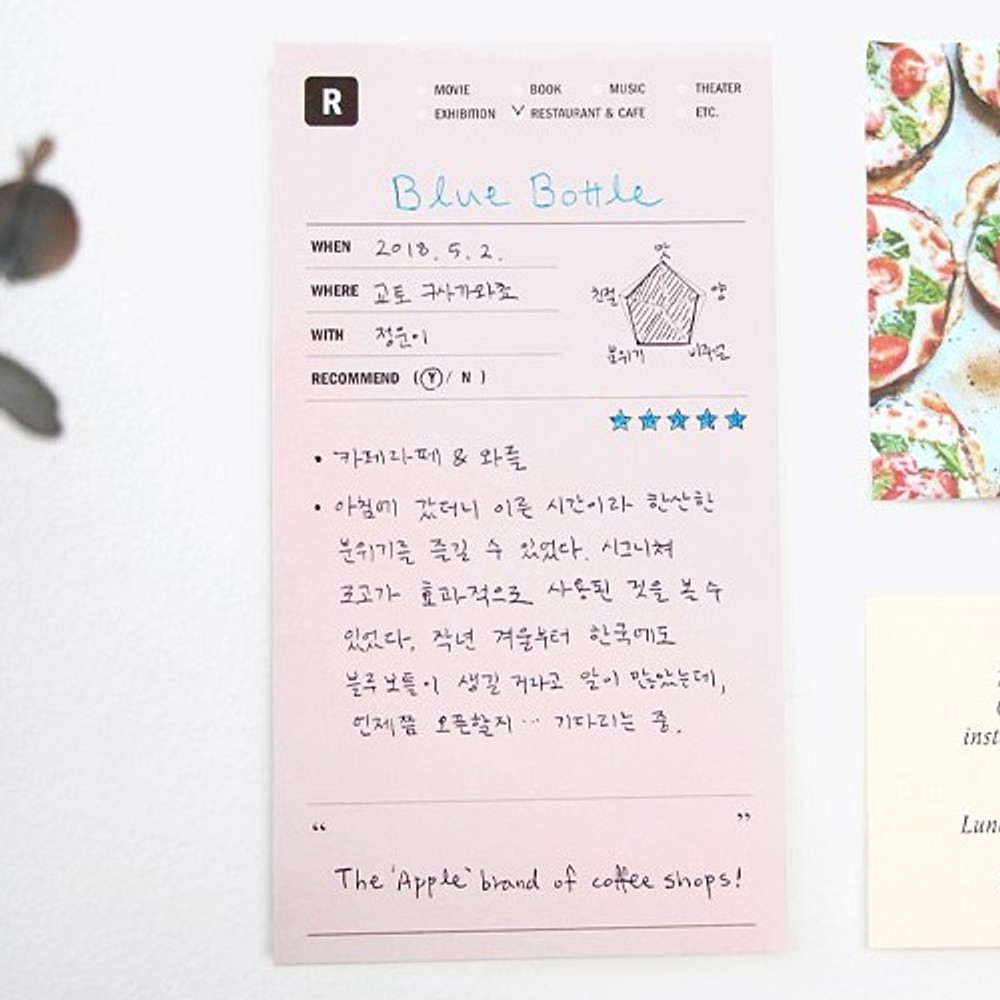 R
MOVIE BOOK MUSIC THEATER
EXHIBITION RESTAURANT & CAFE ETC.
Blue Bottle
WHEN 2018. 5. 2.
WHERE 교토 구사가와쵸
WITH 정운이
RECOMMEND (Y/ N )
맛
친절 양
분위기 비주얼
• 카페라떼 & 와플
• 아침에 갔더니 이른 시간이라 한산한
분위기를 즐길 수 있었다. 시그니쳐
로고가 효과적으로 사용된 것을 볼 수
있었다. 작년 겨울부터 한국에도
블루보틀이 생길 거라고 말이 많았는데,
언제쯤 오픈할지… 기다리는 중.
“ ”
The 'Apple' brand of coffee shops!
inst
Lun